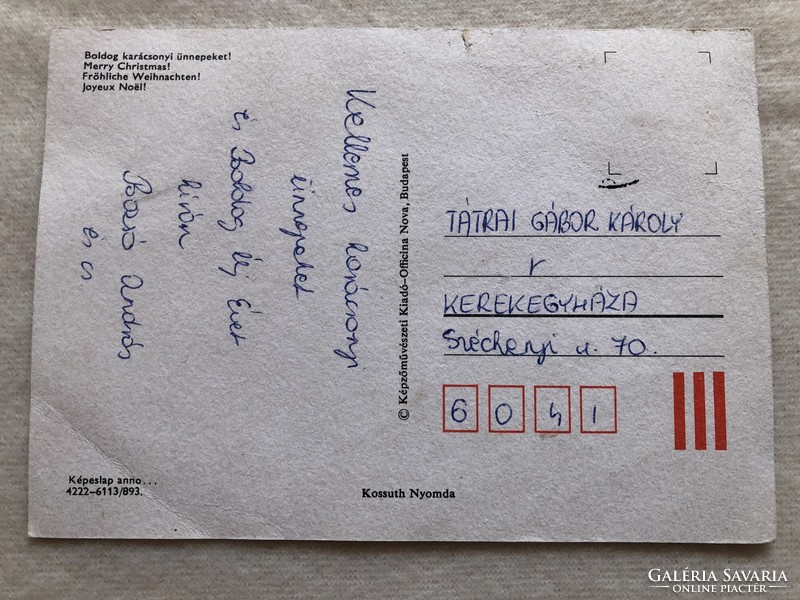 Boldog karácsonyi ünnepeket!
Merry Christmas!
Fröhliche Weihnachten!
Joyeux Noël!
Kellemes karácsonyi
ünnepeket
és Boldog Új Évet
kíván
András
és cs
© Képzőművészeti Kiadó–Officina Nova, Budapest
TÁTRAI GÁBOR KÁROLY
r
KEREKEGYHÁZA
Széchenyi u. 70.
6041
Képeslap anno...
4222–6113/893.
Kossuth Nyomda
GALÉRIA SAVARIA
ONLINE PIACTÉR